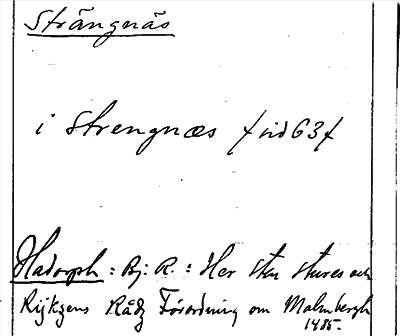 Strängnäs
i Strengnæs f sid 63 f
Hadorph: Bj: R.: Her Sten Stures och
Rijkzens Rådz Förordning om Malmbergh
1485.